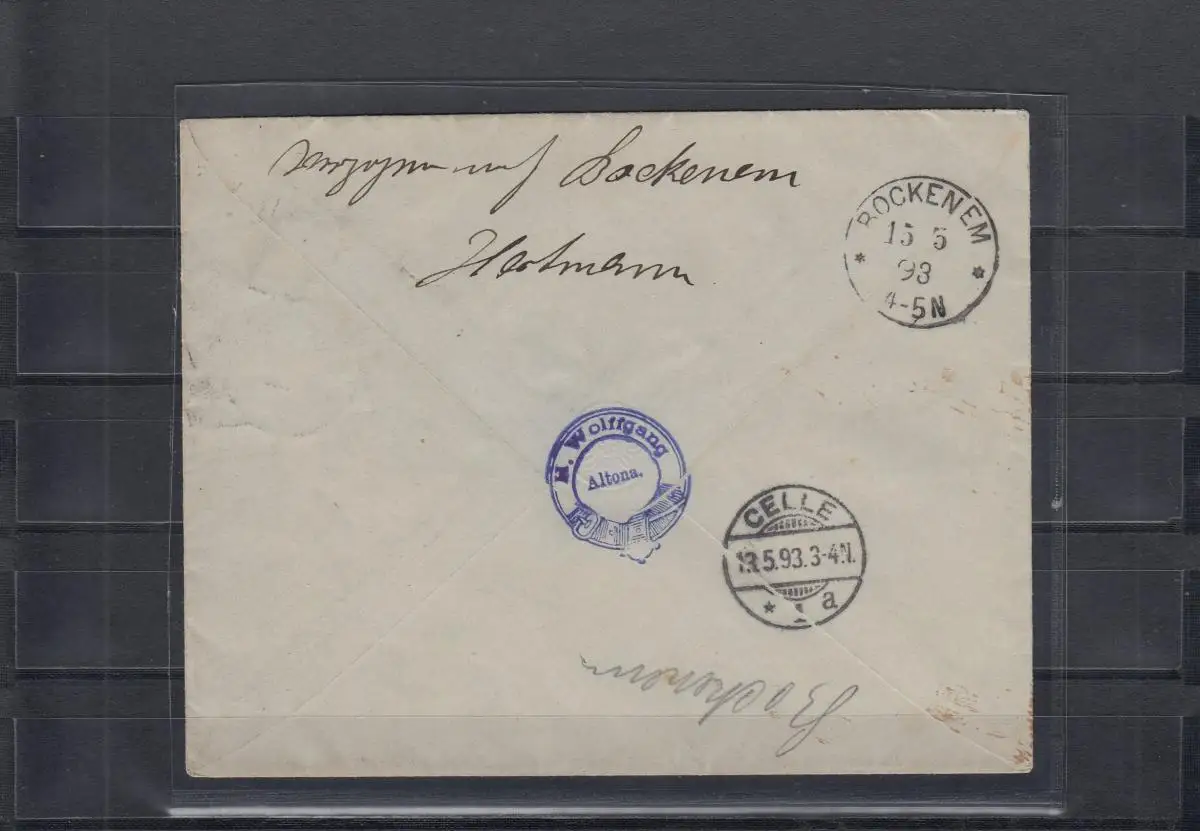 verzogen auf Bockenem
Hartmann
BOCKENEM
15 5
93
4-5N
H. Wolffgang
Altona.
CELLE
13.5.93.3-4N.
* 1 a
Bockenem